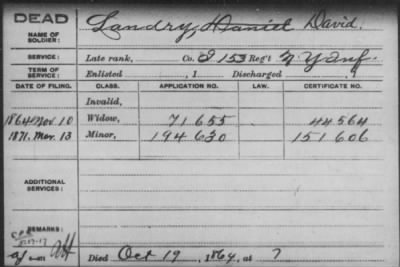 DEAD
NAME OF SOLDIER: Landry, Daniel David.
SERVICE: Late rank, Co. I 153 Reg't N.Y. Inf.
TERM OF SERVICE: Enlisted , 1 Discharged , 1
DATE OF FILING. CLASS. APPLICATION NO. LAW. CERTIFICATE NO.
Invalid,
1864 Nov 10 Widow, 71655 44564
1871, Mar. 13 Minor, 194630 151606
ADDITIONAL SERVICES:
REMARKS:
Died Oct 19, 1864, at ?